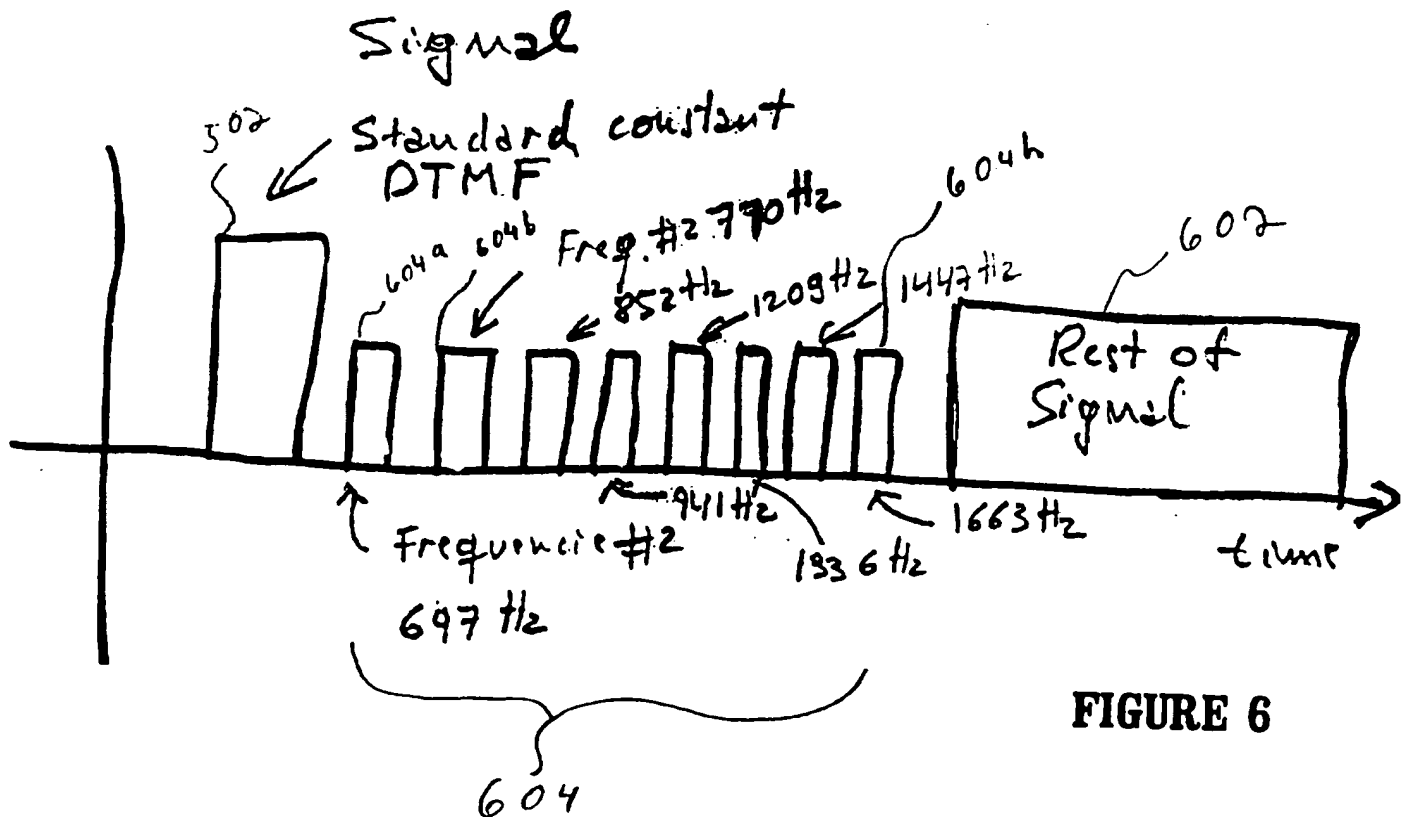 Signal
502
Standard constant
DTMF
604a
604b
Freq. #2 770 Hz
852 Hz
1209 Hz
1447 Hz
604h
602
Rest of
Signal
941 Hz
1336 Hz
1663 Hz
time
Frequencie #2
697 Hz
604
FIGURE 6